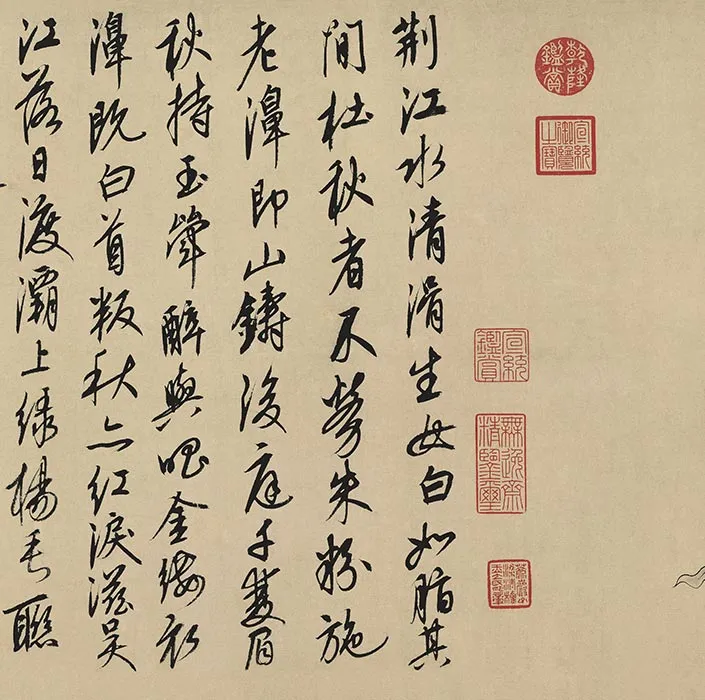 乾隆鑑賞
宣統御覽之寶
宣統鑑賞
無逸齋精鑒璽
荆江水清滑生女白如脂其
間杜秋者不勞朱粉施
老濞即山鑄後庭千雙眉
秋持玉斝醉與唱金縷衣
濞既白首叛秋亦紅淚滋吳
江落日渡灞上緑楊垂聯